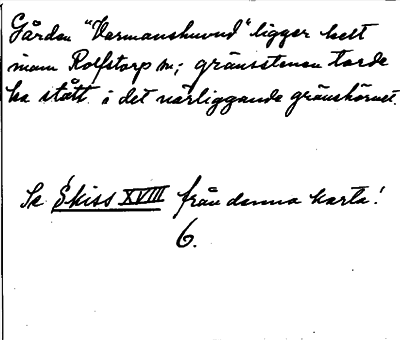 Gården "Vermanshuvud" ligger helt
inom Rolfstorp sn; gränsstenen torde
ha stått i det närliggande gränshörnet.
Se Skiss XVIII från denna karta!
6.